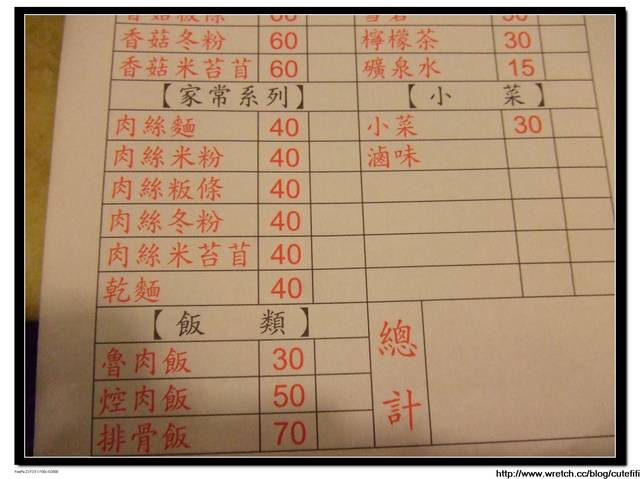 香菇粄條 60
香菇冬粉 60
香菇米苔苜 60
【家常系列】
肉絲麵 40
肉絲米粉 40
肉絲粄條 40
肉絲冬粉 40
肉絲米苔苜 40
乾麵 40
【飯 類】
魯肉飯 30
焢肉飯 50
排骨飯 70
雪碧 30
檸檬茶 30
礦泉水 15
【小 菜】
小菜 30
滷味
總計
http://www.wretch.cc/blog/cutefifi